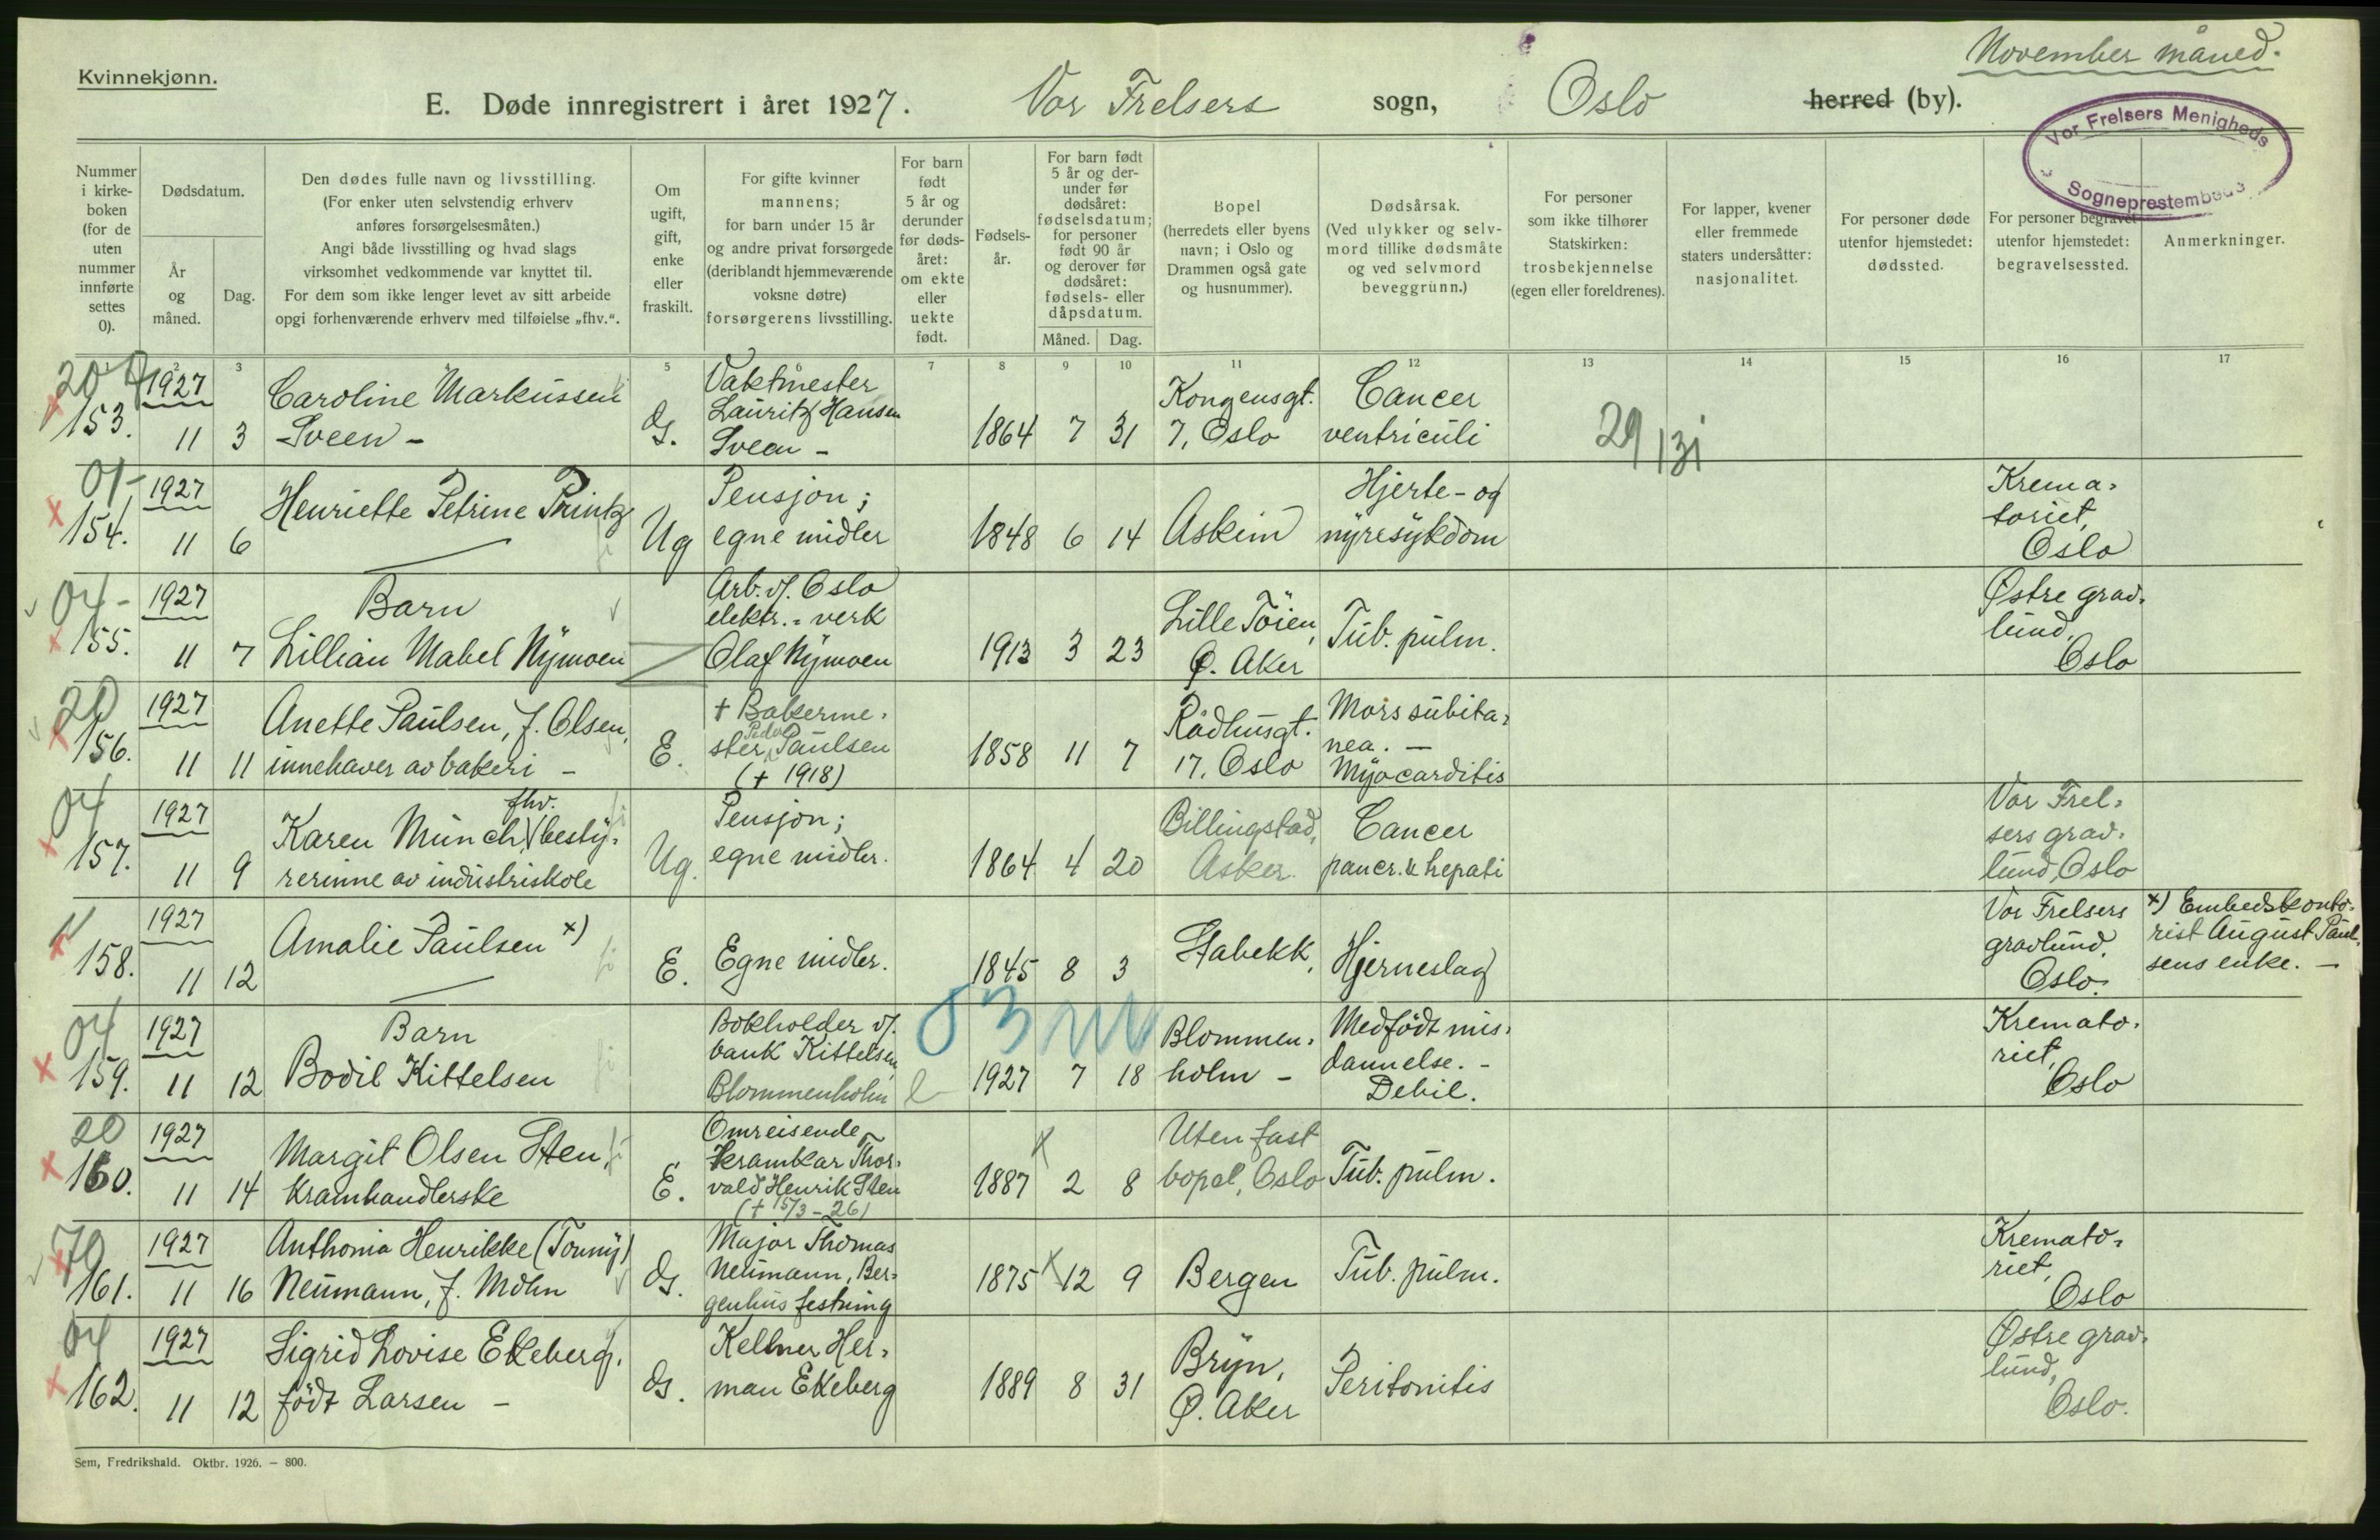 Kvinnekjønn.
November måned.
E. Døde innregistrert i året 1927. Vor Frelsers sogn, Oslo herred (by).
Vor Frelsers Menigheds
Sogneprestembede
Nummer
i kirke-
boken
(for de
uten
nummer
innførte
settes
0).
Dødsdatum.
År
og
måned.
Dag.
Den dødes fulle navn og livsstilling.
(For enker uten selvstendig erhverv
anføres forsørgelsesmåten.)
Angi både livsstilling og hvad slags
virksomhet vedkommende var knyttet til.
For dem som ikke lenger levet av sitt arbeide
opgi forhenværende erhverv med tilføielse „fhv.“.
Om
ugift,
gift,
enke
eller
fraskilt.
For gifte kvinner
mannens;
for barn under 15 år
og andre privat forsørgede
(deriblandt hjemmeværende
voksne døtre)
forsørgerens livsstilling.
For barn
født
5 år og
derunder
før døds-
året:
om ekte
eller
uekte
født.
Fødsels-
år.
For barn født
5 år og der-
under før
dødsåret:
fødselsdatum;
for personer
født 90 år
og derover før
dødsåret:
fødsels- eller
dåpsdatum.
Måned. Dag.
Bopel
(herredets eller byens
navn; i Oslo og
Drammen også gate
og husnummer).
Dødsårsak.
(Ved ulykker og selv-
mord tillike dødsmåte
og ved selvmord
beveggrunn.)
For personer
som ikke tilhører
Statskirken:
trosbekjennelse
(egen eller foreldrenes).
For lapper, kvener
eller fremmede
staters undersåtter:
nasjonalitet.
For personer døde
utenfor hjemstedet:
dødssted.
For personer begravet
utenfor hjemstedet:
begravelsessted.
Anmerkninger.
2 3 5 7 8 9 10 11 12 13 14 15 16 17
20
153.
1927
11 3
Caroline Markussen
Sveen -
G.
Vaktmester
Lauritz Hansen
Sveen -
1864 7 31
Kongensgt.
7, Oslo
Cancer
ventriculi
29/31
01-
154.
1927
11 6
Henriette Petrine Printz
Ug
Pensjon;
egne midler
1848 6 14
Askim
Hjerte- og
nyresykdom
Krema-
toriet,
Oslo
04-
155.
1927
11 7
Barn
Lillian Mabel Nymoen
Arb. v/. Oslo
elektr.- verk
Olaf Nymoen
1913 3 23
Lille Töien,
Ø. Aker
Tub. pulm.
Østre grav-
lund,
Oslo
20
156.
1927
11 11
Anette Paulsen, f. Olsen,
innehaver av bakeri -
E.
+ Bakerme-
ster Paulsen
(+ 1918)
1858 11 7
Rådhusgt.
17, Oslo
Mors subita-
nea. -
Myocarditis
04
157.
1927
11 9
fhv.
Karen Münch, besty-
rerinne av industriskole
Ug.
Pensjon;
egne midler.
1864 4 20
Billingstad,
Asker.
Cancer
pancr. & hepati
Vor Frel-
sers grav-
lund, Oslo
11
158.
1927
11 12
Amalie Paulsen x)
E.
Egne midler.
1845 8 3
Stabekk,
Hjerneslag
Vor Frelsers
gravlund,
Oslo.
x) Embedskonto-
rist August Paul-
sens enke. -
04
159.
1927
11 12
Barn
Bodil Kittelsen
Bokholder v/.
bank Kittelsen,
Blommenholm
03
1927 7 18
Blommen-
holm -
Medfödt mis-
dannelse. -
Debil.
Kremato-
riet,
Oslo
20
160.
1927
11 14
Margit Olsen Sten,
Kramhandlerske
E.
Omreisende
kramkar Thor-
vald Henrik Sten
(+ 15/3 - 26)
1887 2 8
Uten fast
bopel, Oslo
Tub. pulm.
70
161.
1927
11 16
Anthonia Henrikke (Tonny)
Neumann, f. Mohn
G.
Major Thomas
Neumann, Ber-
genhus festning
1875 12 9
Bergen
Tub. pulm.
Kremato-
riet,
Oslo
04
162.
1927
11 12
Sigrid Lovise Ekeberg,
födt Larsen -
G.
Kellner Her-
man Ekeberg
1889 8 31
Bryn,
Ø. Aker
Peritonitis
Østre grav-
lund,
Oslo.
Sem, Fredrikshald. Oktbr. 1926. — 800.